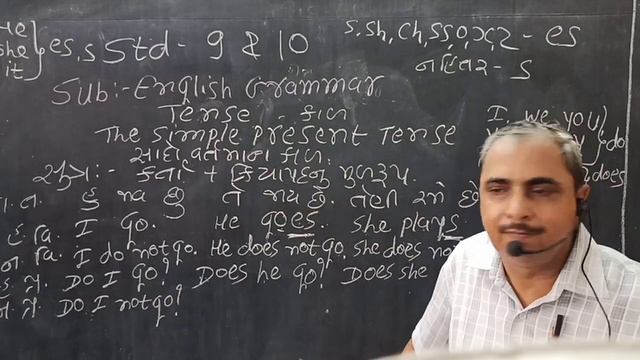 He
she
it } es, s Std - 9 & 10
s, sh, ch, ss, o, x, z - es
નહિતર - s
Sub:- English Grammar
Tense - કાળ
The simple present Tense
I, we, you
do
સાદો વર્તમાન કાળ.
does
સૂત્ર :- કર્તા + ક્રિયાપદનું મૂળરૂપ.
હું જાઉં છું તે જાય છે. તેણી રમે છે
હ. વા. I go. He goes. She plays.
ન. વા. I do not go. He does not go. she does no
Do I go? Does he go? Does she
Do I not go?